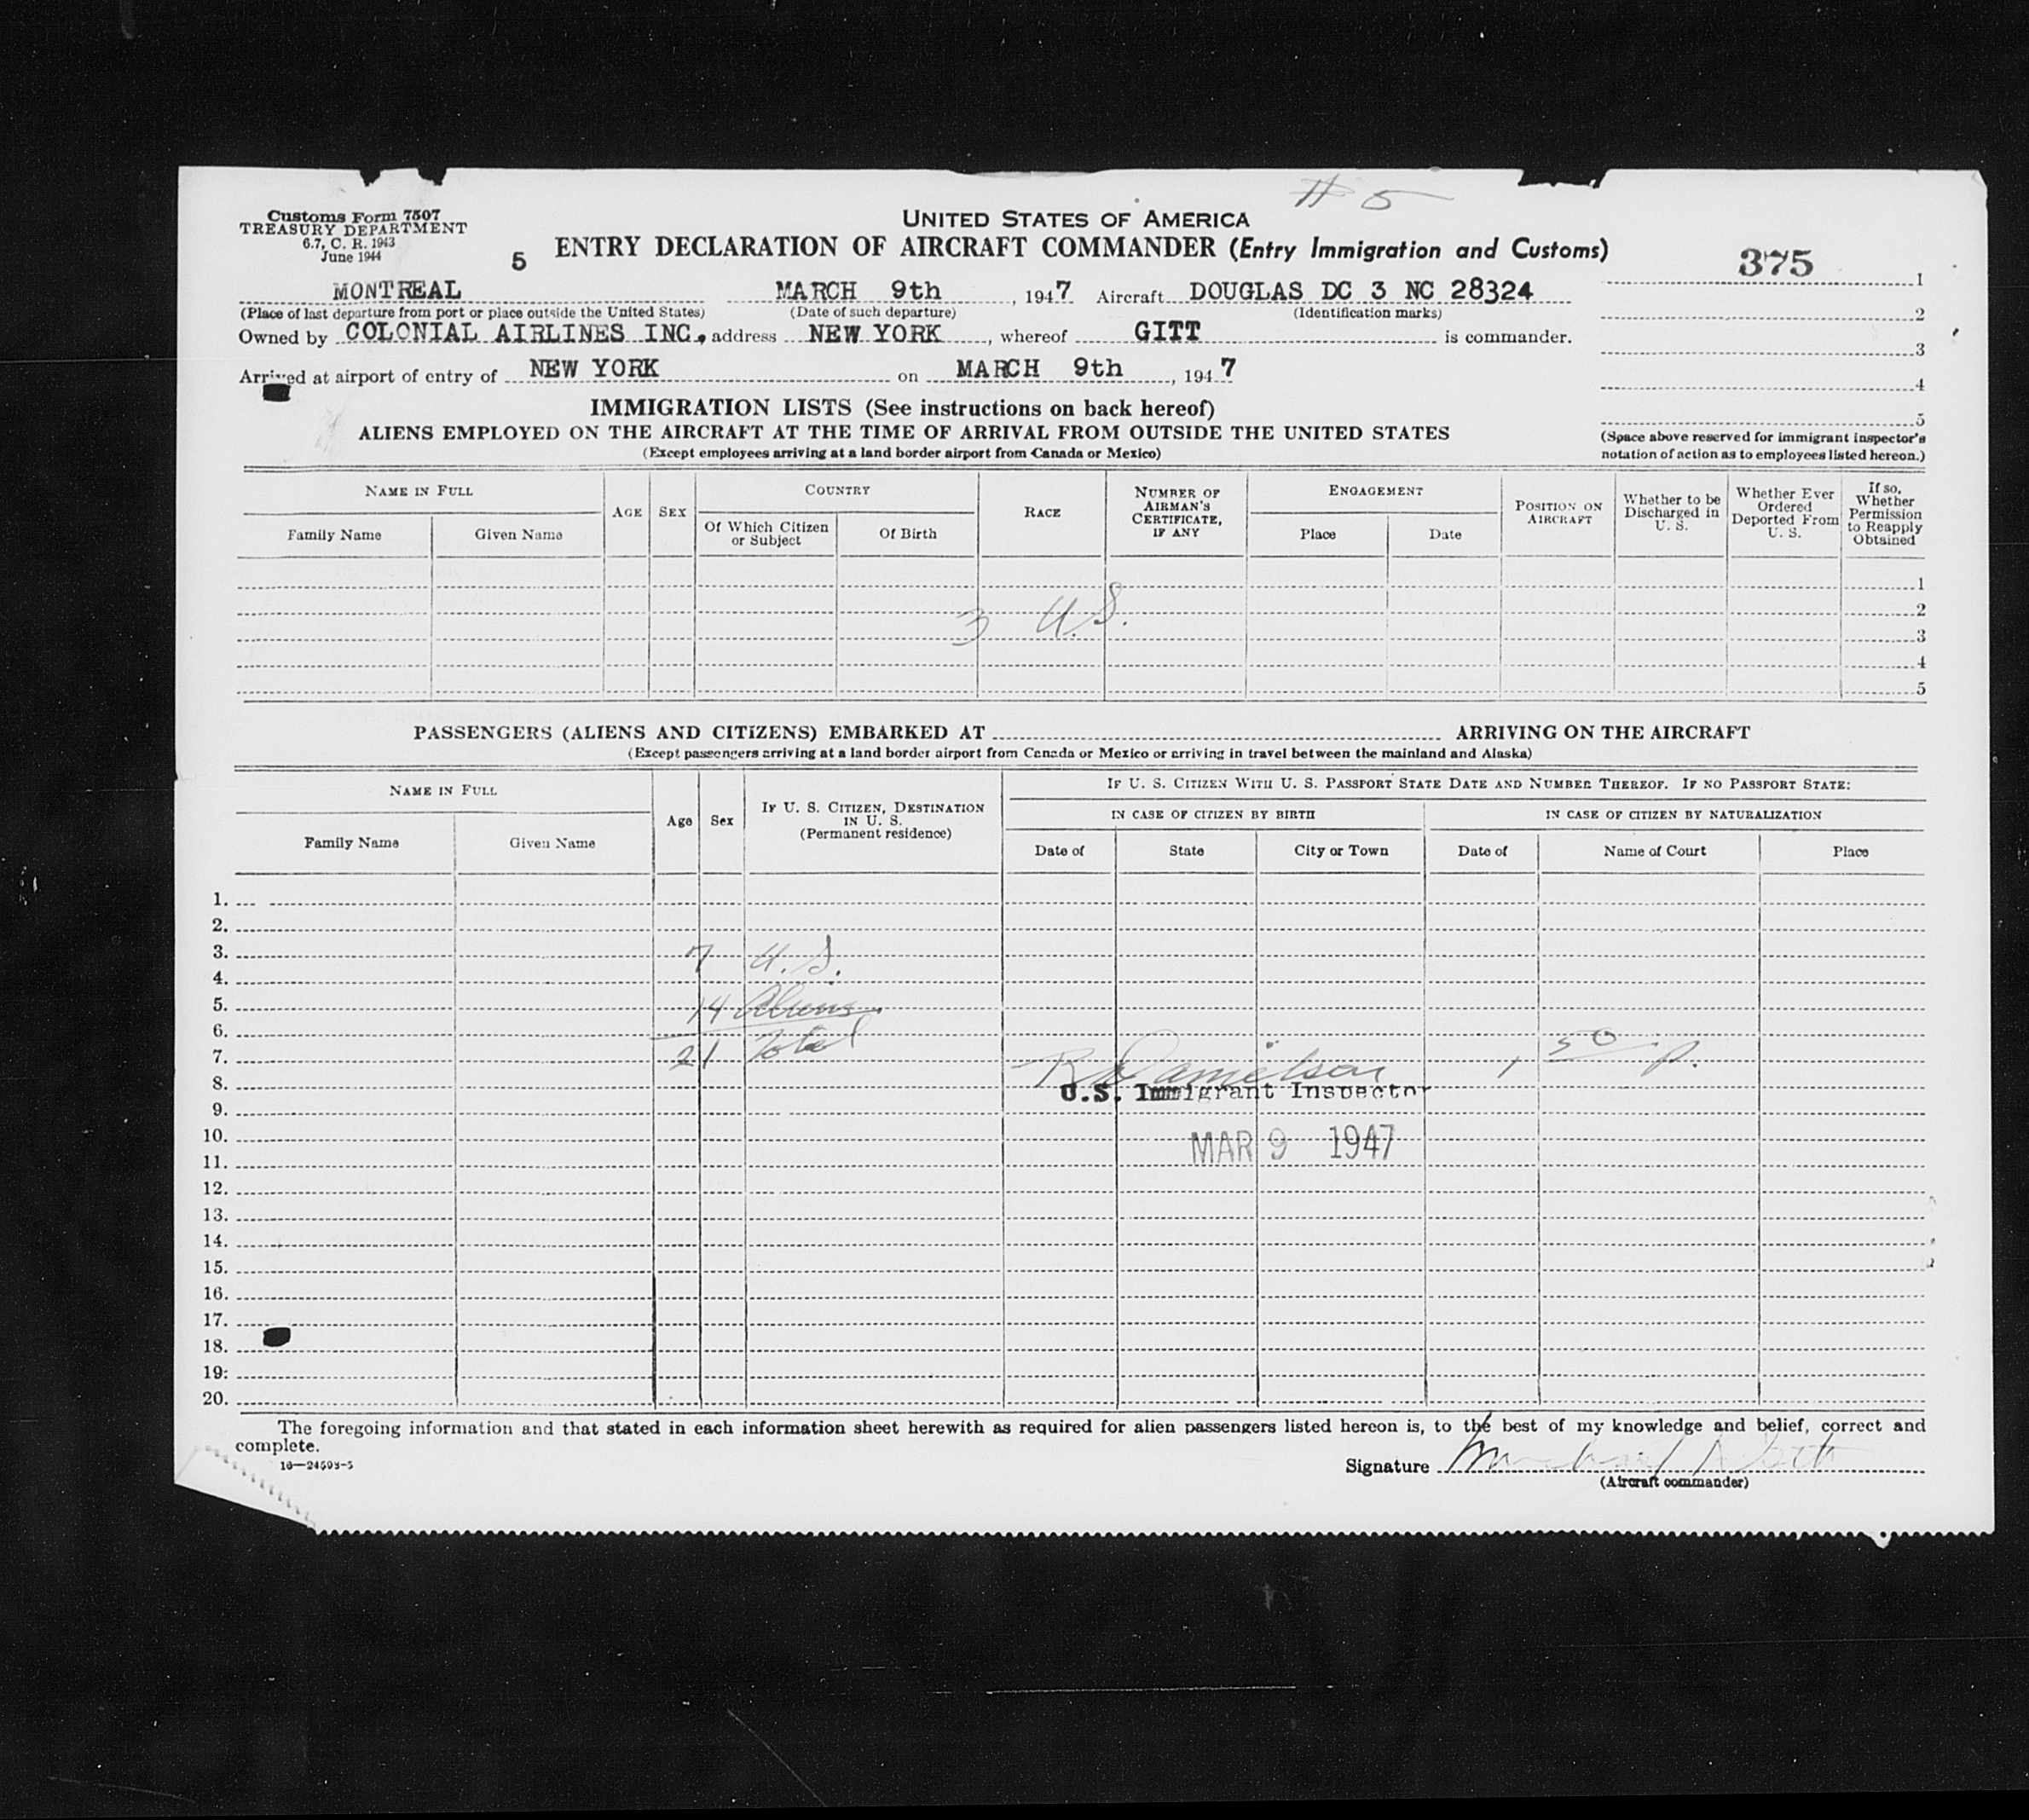 # 5
Customs Form 7507
TREASURY DEPARTMENT
6.7, C. R. 1943
June 1944
UNITED STATES OF AMERICA
5 ENTRY DECLARATION OF AIRCRAFT COMMANDER (Entry Immigration and Customs)
375
1
MONTREAL MARCH 9th, 1947 Aircraft DOUGLAS DC 3 NC 28324
(Place of last departure from port or place outside the United States) (Date of such departure) (Identification marks)
2
Owned by COLONIAL AIRLINES INC, address NEW YORK, whereof GITT is commander.
3
Arrived at airport of entry of NEW YORK on MARCH 9th, 1947
4
IMMIGRATION LISTS (See instructions on back hereof)
5
ALIENS EMPLOYED ON THE AIRCRAFT AT THE TIME OF ARRIVAL FROM OUTSIDE THE UNITED STATES
(Except employees arriving at a land border airport from Canada or Mexico)
(Space above reserved for immigrant inspector's
notation of action as to employees listed hereon.)
NAME IN FULL
Family Name
Given Name
AGE
SEX
COUNTRY
Of Which Citizen
or Subject
Of Birth
RACE
NUMBER OF
AIRMAN'S
CERTIFICATE,
IF ANY
ENGAGEMENT
Place
Date
POSITION ON
AIRCRAFT
Whether to be
Discharged in
U. S.
Whether Ever
Ordered
Deported From
U. S.
If so,
Whether
Permission
to Reapply
Obtained
1
2
3 U.S.
3
4
5
PASSENGERS (ALIENS AND CITIZENS) EMBARKED AT ARRIVING ON THE AIRCRAFT
(Except passengers arriving at a land border airport from Canada or Mexico or arriving in travel between the mainland and Alaska)
NAME IN FULL
Family Name
Given Name
Age
Sex
IF U. S. CITIZEN, DESTINATION
IN U. S.
(Permanent residence)
IF U. S. CITIZEN WITH U. S. PASSPORT STATE DATE AND NUMBER THEREOF. IF NO PASSPORT STATE:
IN CASE OF CITIZEN BY BIRTH
IN CASE OF CITIZEN BY NATURALIZATION
Date of
State
City or Town
Date of
Name of Court
Place
1.
2.
3. 7 U.S.
4.
5. 14 Aliens
6.
7. 21 Total
R Danielson 1 50 p.
8.
U.S. Immigrant Inspector
9.
10.
MAR 9 1947
11.
12.
13.
14.
15.
16.
17.
18.
19.
20.
The foregoing information and that stated in each information sheet herewith as required for alien passengers listed hereon is, to the best of my knowledge and belief, correct and
complete.
16—24593-5
Signature
(Aircraft commander)